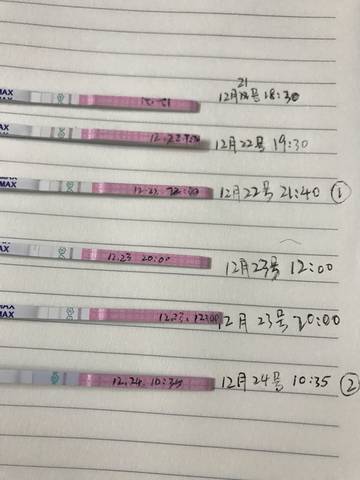 MAX
12.21
21
12月号 18:30
MAX
12.22
12月22号 19:30
MAX
MAX
12.22
12月22号 21:40 ①
12.23 20:00
12月23号 12:00
MAX
MAX
12.23. 12:00
12月23号 20:00
12.24. 10:35
12月24号 10:35 ②